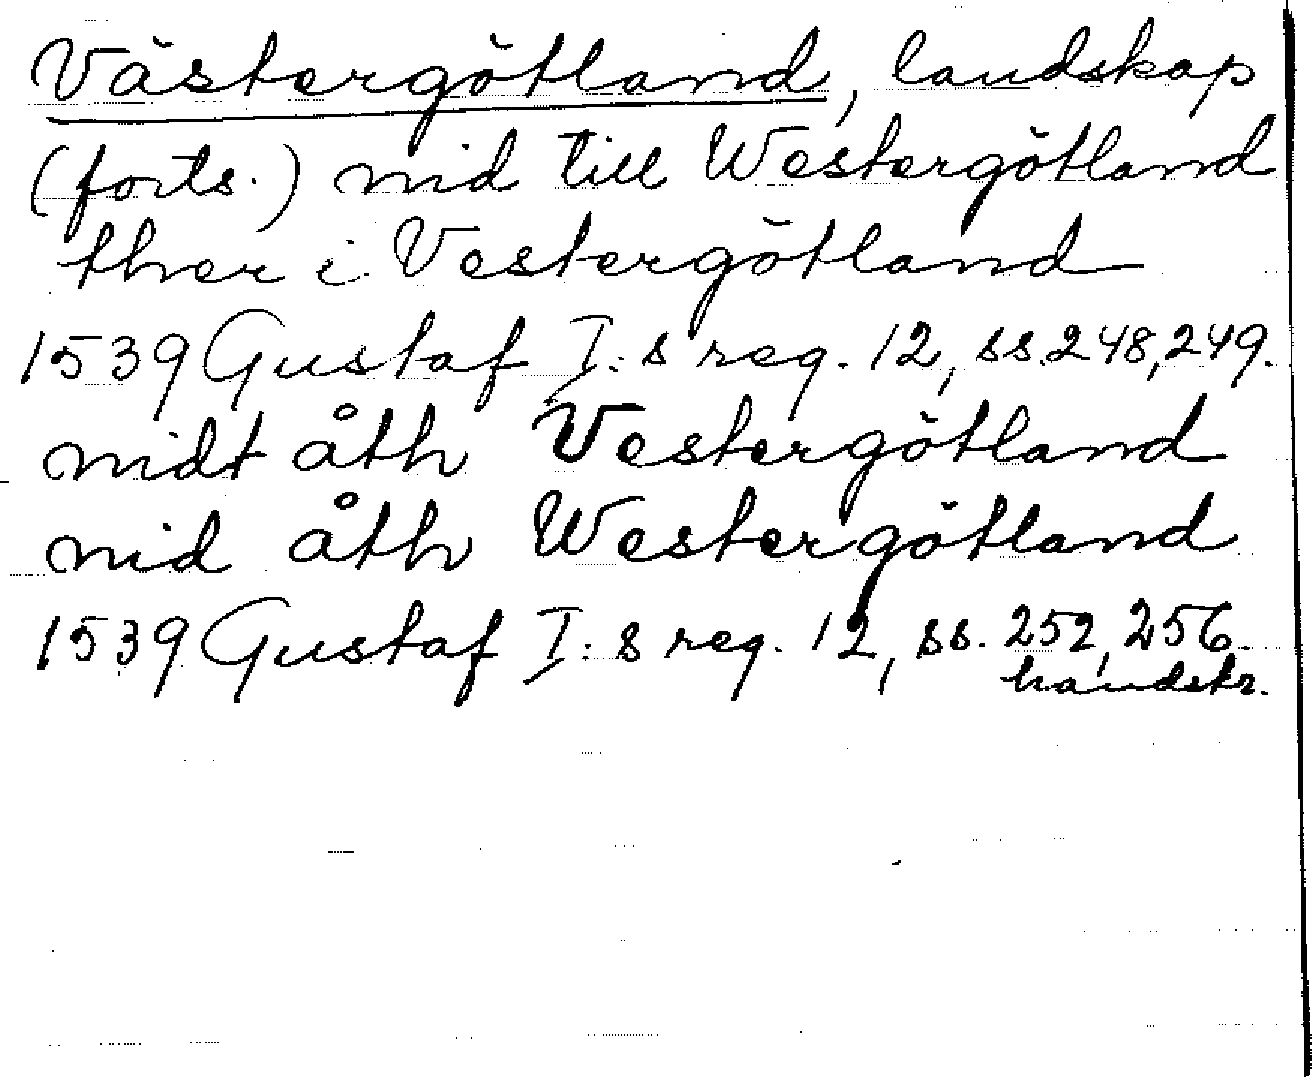 Västergötland, landskap
(forts.) nid till Westergötland
ther i Vestergötland
1539 Gustaf I:s reg. 12, ss. 248, 249.
nidt åth Vestergötland
nid åth Westergötland
1539 Gustaf I:s reg. 12, ss. 252, 256.
handskr.